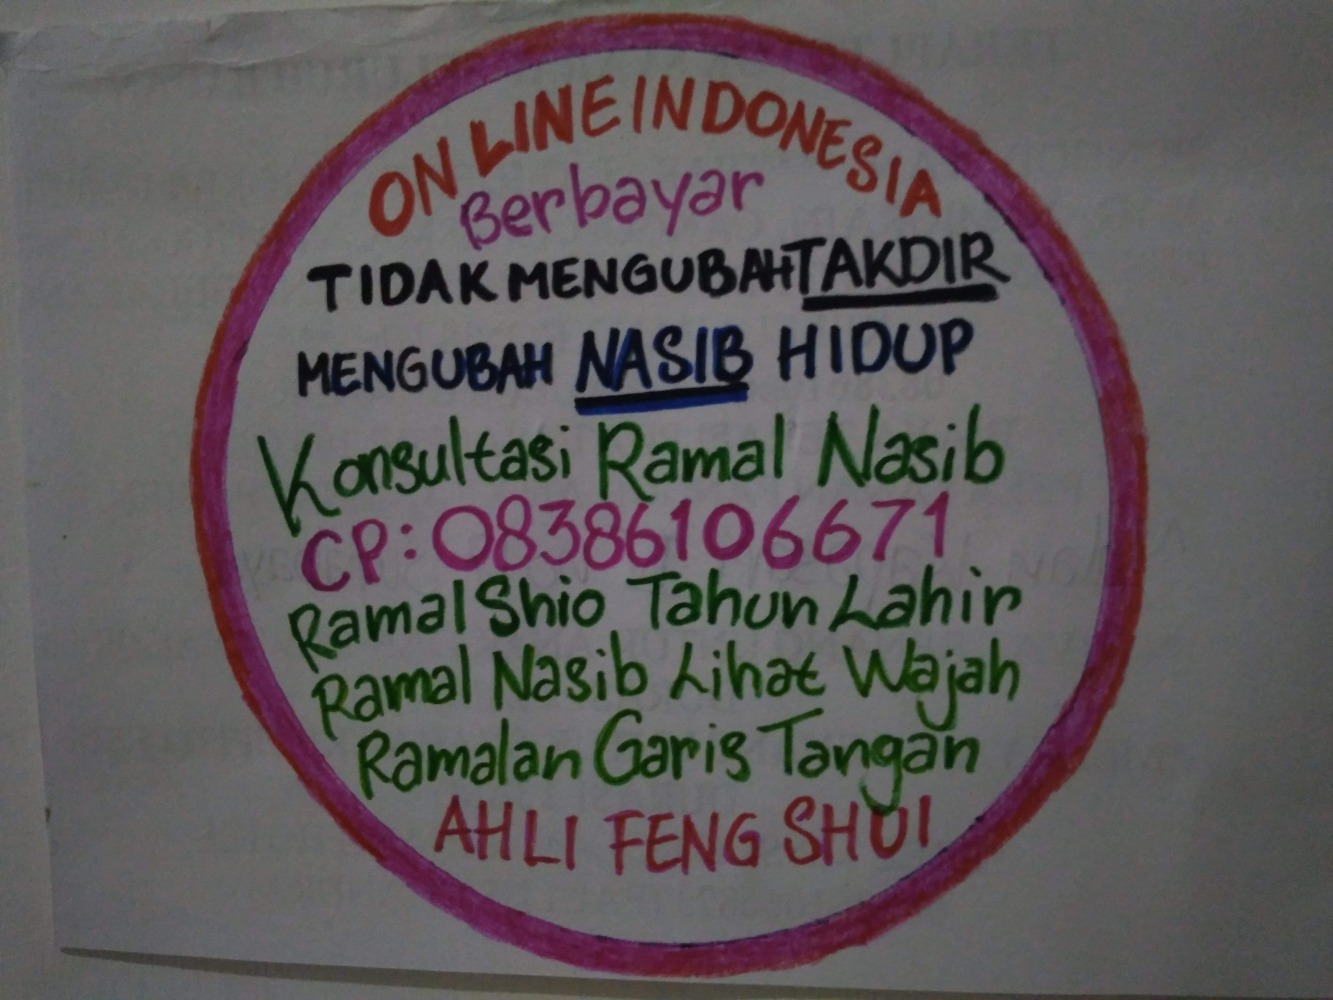 ONLINE INDONESIA
Berbayar
TIDAK MENGUBAH TAKDIR
MENGUBAH NASIB HIDUP
Konsultasi Ramal Nasib
CP: 08386106671
Ramal Shio Tahun Lahir
Ramal Nasib Lihat Wajah
Ramalan Garis Tangan
AHLI FENG SHUI